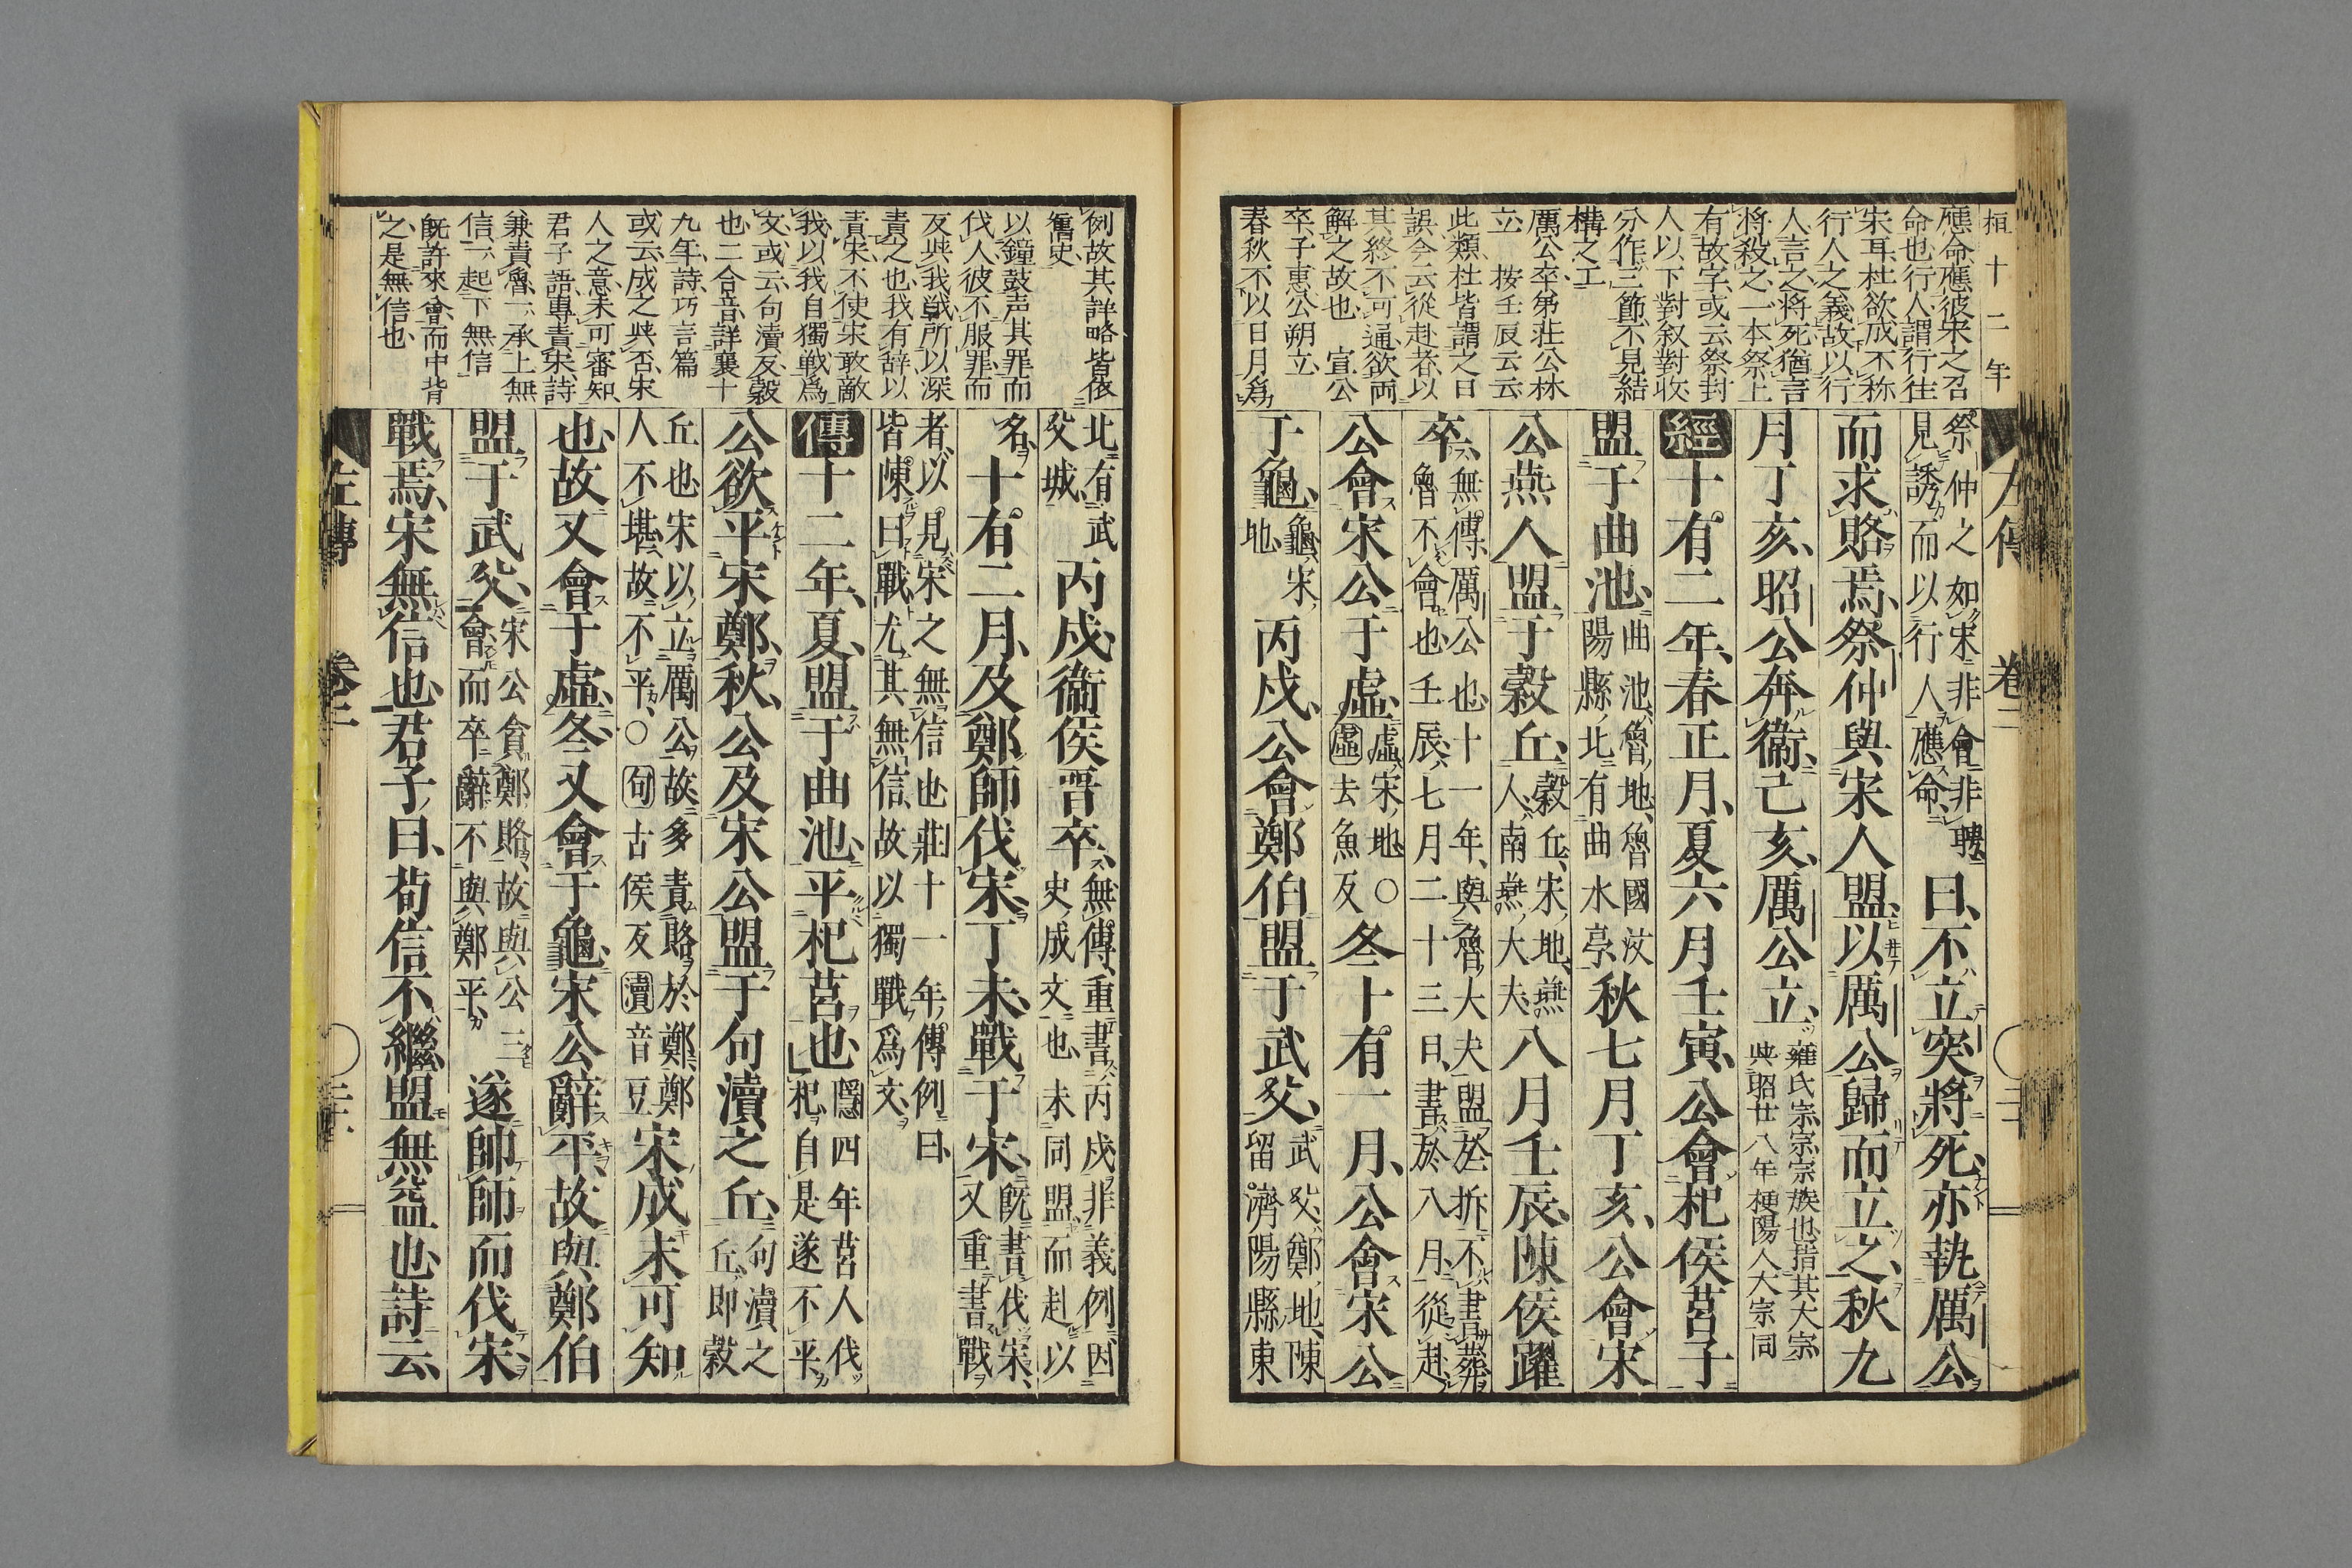 桓十二年
應命應彼宋之召
命也行人謂行往
宋耳杜欲成不称
行人之義故以行
人言之將死猶言
將殺之一本祭上
有故字或云祭封
人以下對叙對收
分作三節不見結
構之工
厲公卒第莊公林
立 按壬辰云云
此類杜皆謂之日
誤今云從赴者以
其終不可通欲両
解之故也 宣公
卒子惠公朔立
春秋不以日月爲
祭仲之如宋非會非聘
見誘而以行人應命
曰不立突將死亦執厲公
而求賂焉祭仲與宋人盟以厲公歸而立之秋九
月丁亥昭公奔衞己亥厲公立
雍氏宗宗宗族也指其大宗
與昭廿八年梗陽人大宗同
經十有二年春正月夏六月壬寅公會杞侯莒子
盟于曲池
曲池魯地魯國汶
陽縣北有曲水亭
秋七月丁亥公會宋
公燕人盟于穀丘
穀丘宋地燕
人南燕大夫
八月壬辰陳侯躍
卒
無傳厲公也十一年與魯大夫盟於折不書葬
魯不會也壬辰七月二十三日書於八月從赴
公會宋公于虛
虛宋地○
虛去魚反
冬十有一月公會宋公
于龜
龜宋
地
丙戌公會鄭伯盟于武父
武父鄭地陳
留濟陽縣東
例故其詳略皆依
舊史
以鐘鼓声其罪而
伐人彼不服罪而
反與我戰所以深
責之也我有辞以
責宋不使宋敢敵
我以我自獨戰爲
文或云句瀆反穀
也二合音詳襄十
九年詩巧言篇
或云成之與否宋
人之意未可審知
君子語專責宋詩
兼責魯一承上無
信一起下無信
既許來會而中背
之是無信也
北有武
父城
丙戌衞侯晋卒
無傳重書丙戌非義例因
史成文也未同盟而赴以
名
十有二月及鄭師伐宋丁未戰于宋
既書伐宋
又重書戰
者以見宋之無信也莊十一年傳例曰
皆陳曰戰尤其無信故以獨戰爲文
傳十二年夏盟于曲池平杞莒也
隱四年莒人伐
杞自是遂不平
公欲平宋鄭秋公及宋公盟于句瀆之丘
句瀆之
丘即穀
丘也宋以立厲公故多責賂於鄭鄭
人不堪故不平○句古侯反瀆音豆
宋成未可知
也故又會于虛冬又會于龜宋公辭平故與鄭伯
盟于武父
宋公貪鄭賂故與公三
會而卒辭不與鄭平
遂帥師而伐宋
戰焉宋無信也君子曰苟信不繼盟無益也詩云
左傳 卷二